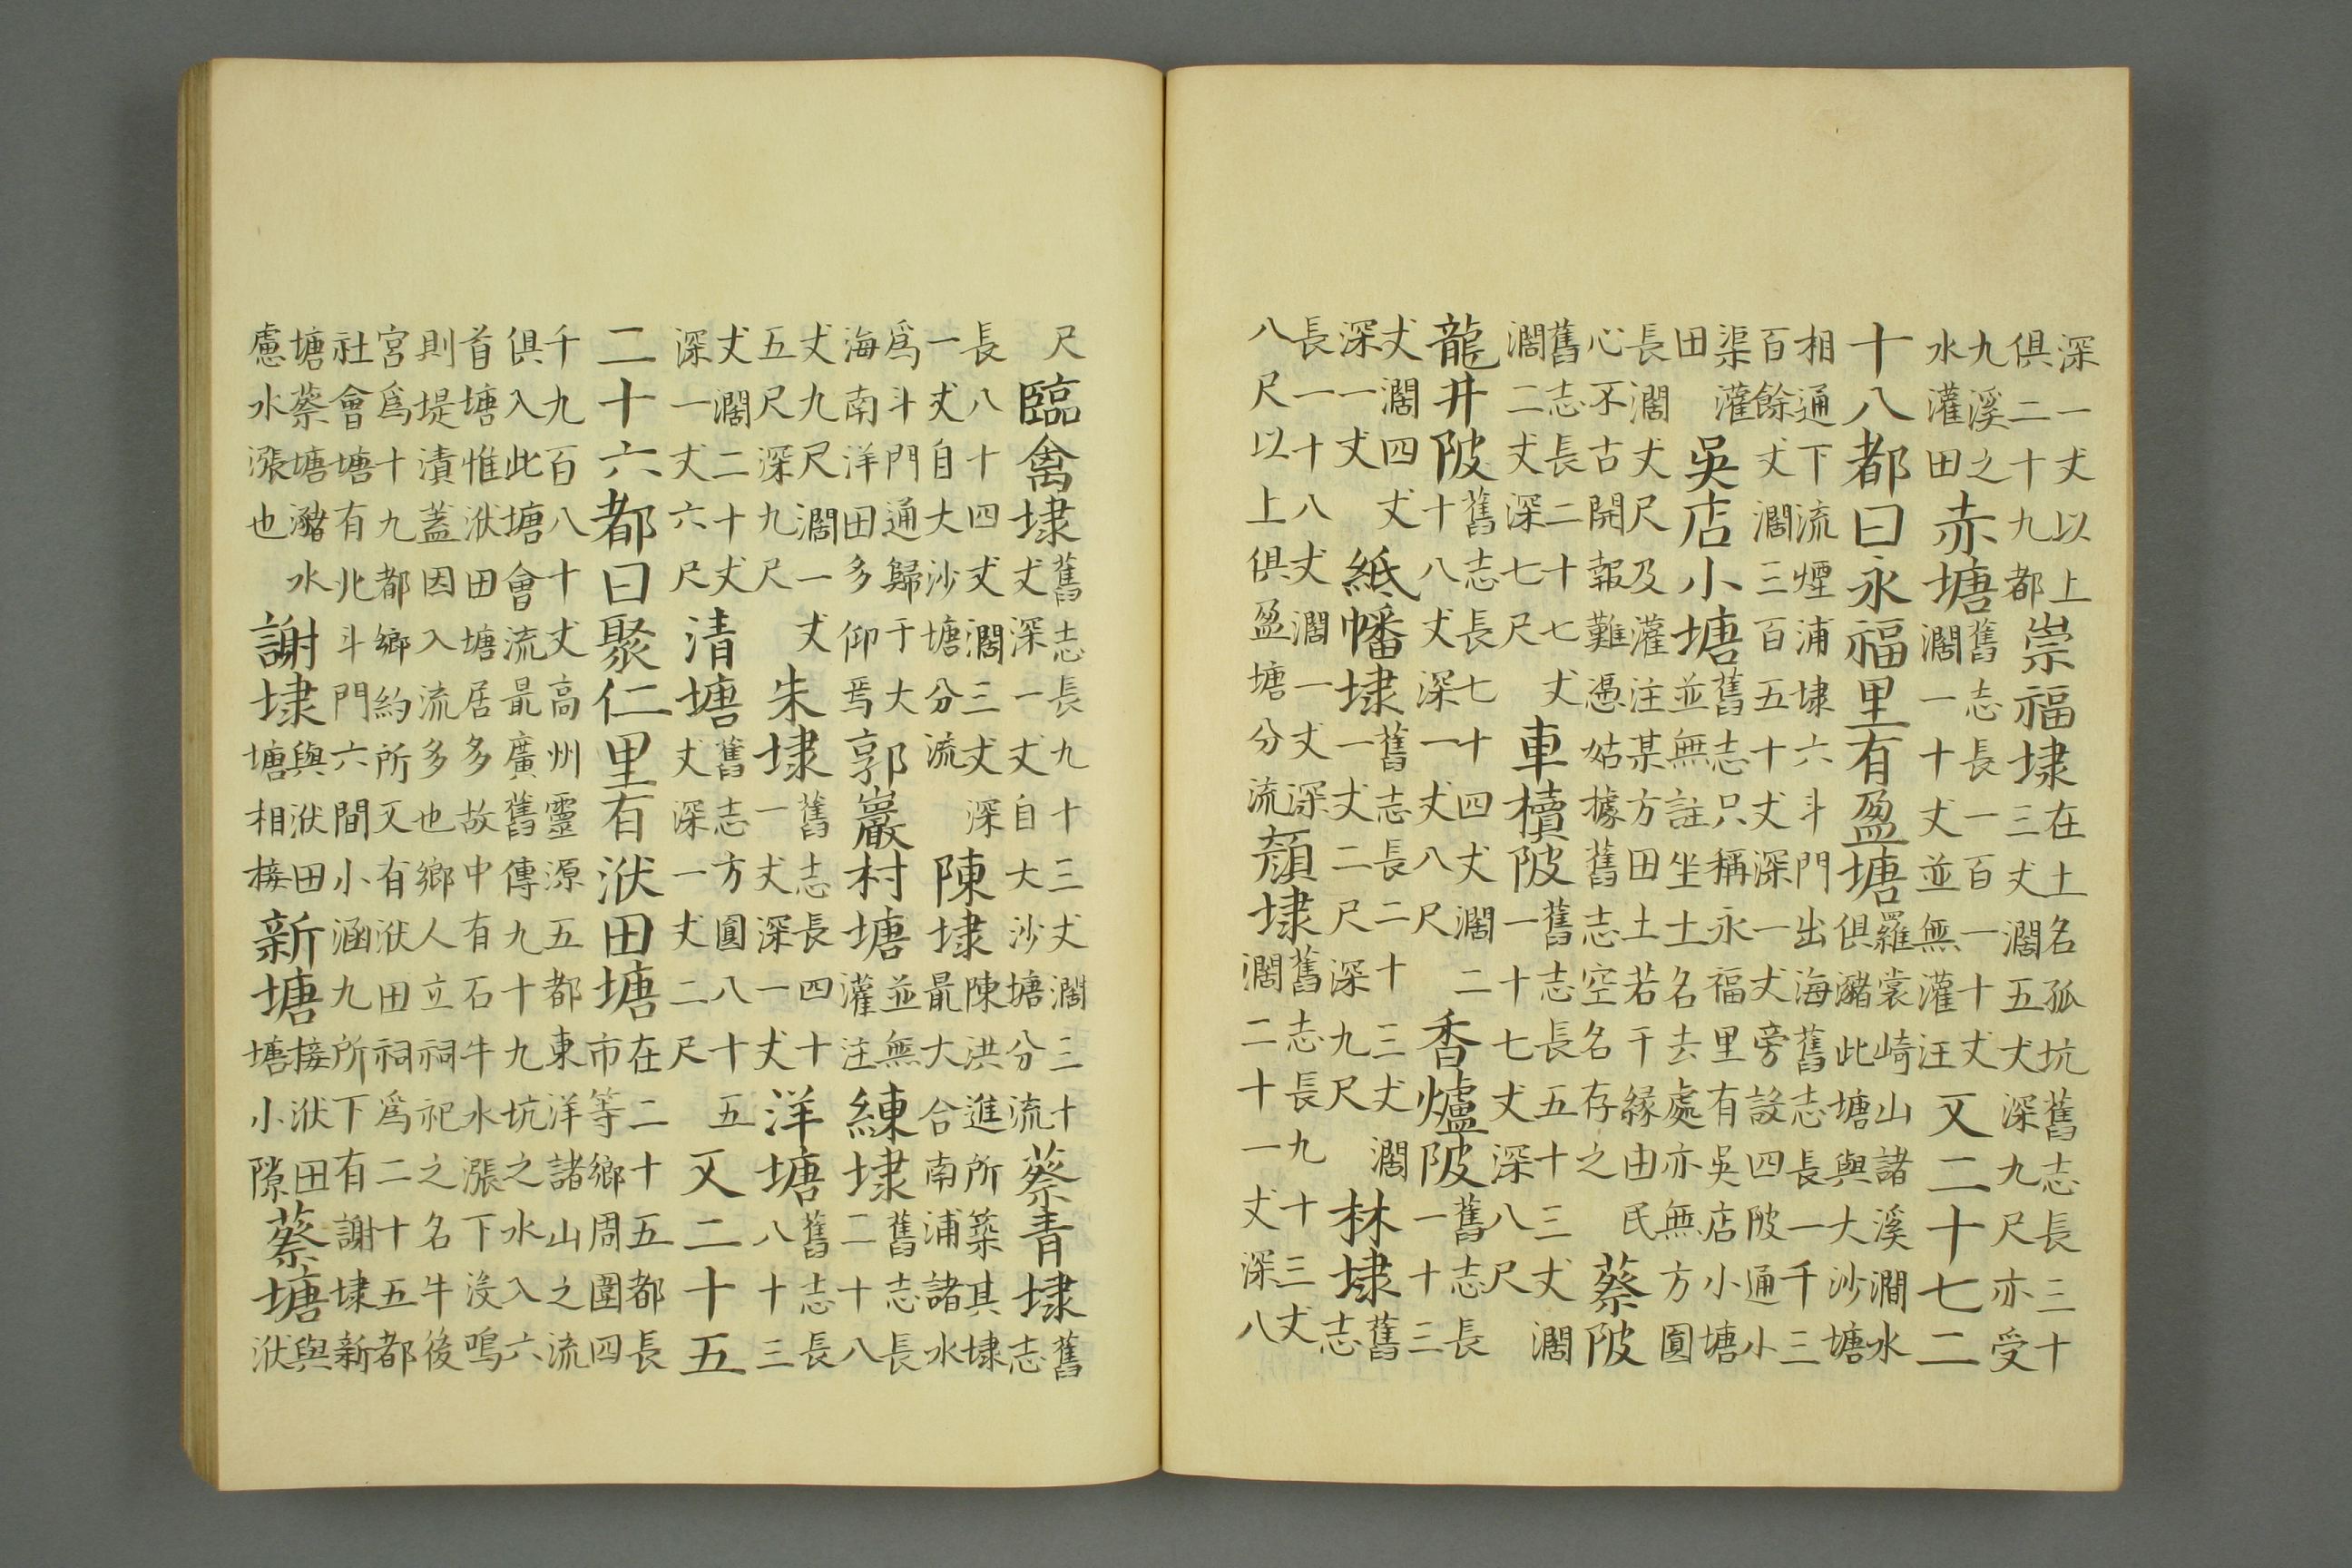 深一丈以上俱二十九都崇福埭在土名孤坑舊志長三十三丈濶五丈深九尺亦受
九溪之水灌田赤塘舊志長一百一十丈濶一十丈並無灌汪又二十七二
十八都曰永福里有盈塘羅裳崎山諸溪澗水俱瀦此塘與大沙塘
相通下流煙浦埭六斗門出海舊志長一千三百餘丈濶三百五十丈深一丈旁設四陂通小
渠灌田吳店小塘舊志只稱永福里有吳店小塘並無註坐土名去處亦無方圓
長濶丈尺及灌注某方田土若干緣由民心不古開報難憑姑據舊志空名存之蔡陂
舊志長二十七丈濶二丈深七尺車櫝陂舊志長五十三丈濶一十七丈深八尺
龍井陂舊志長七十四丈濶二十八丈深一丈八尺香爐陂舊志長一十三
丈濶四丈深一丈紙幡埭舊志長二十三丈濶一丈二尺深九尺林埭舊志
長一十八丈濶一丈深八尺以上俱盈塘分流顏埭舊志長九十三丈濶二十一丈深八
尺臨禽埭舊志長九十三丈濶三十丈深一丈自大沙塘分流蔡青埭舊志
長八十四丈濶三丈深一丈自大沙塘分流陳埭陳洪進所築其埭最大合南浦諸水
爲斗門通歸于大海南洋田多仰焉郭巖村塘並無灌注練埭舊志長二十八
丈九尺濶一丈五尺深九尺朱埭舊志長四十一丈深一丈洋塘舊志長八十三
丈濶二十丈深一丈六尺清塘舊志方圓八十五丈深一丈二尺又二十五
二十六都曰聚仁里有洑田塘在二十五都長市等鄉周圍四
千九百八十丈高州靈源五都東洋諸山之流俱入此塘會流最廣舊傳九十九坑之水入六
首塘惟洑田塘居多故中有石牛水漲下沒鳴則堤潰蓋因入流多也鄉人立祠祀之名牛後
宮爲十九都鄉約所又有洑田祠爲二十五都社會塘有北斗門六間小涵九所下有謝埭新
塘蔡塘瀦水慮水漲也謝埭與洑田塘相接新塘接洑田塘小隙蔡塘與洑